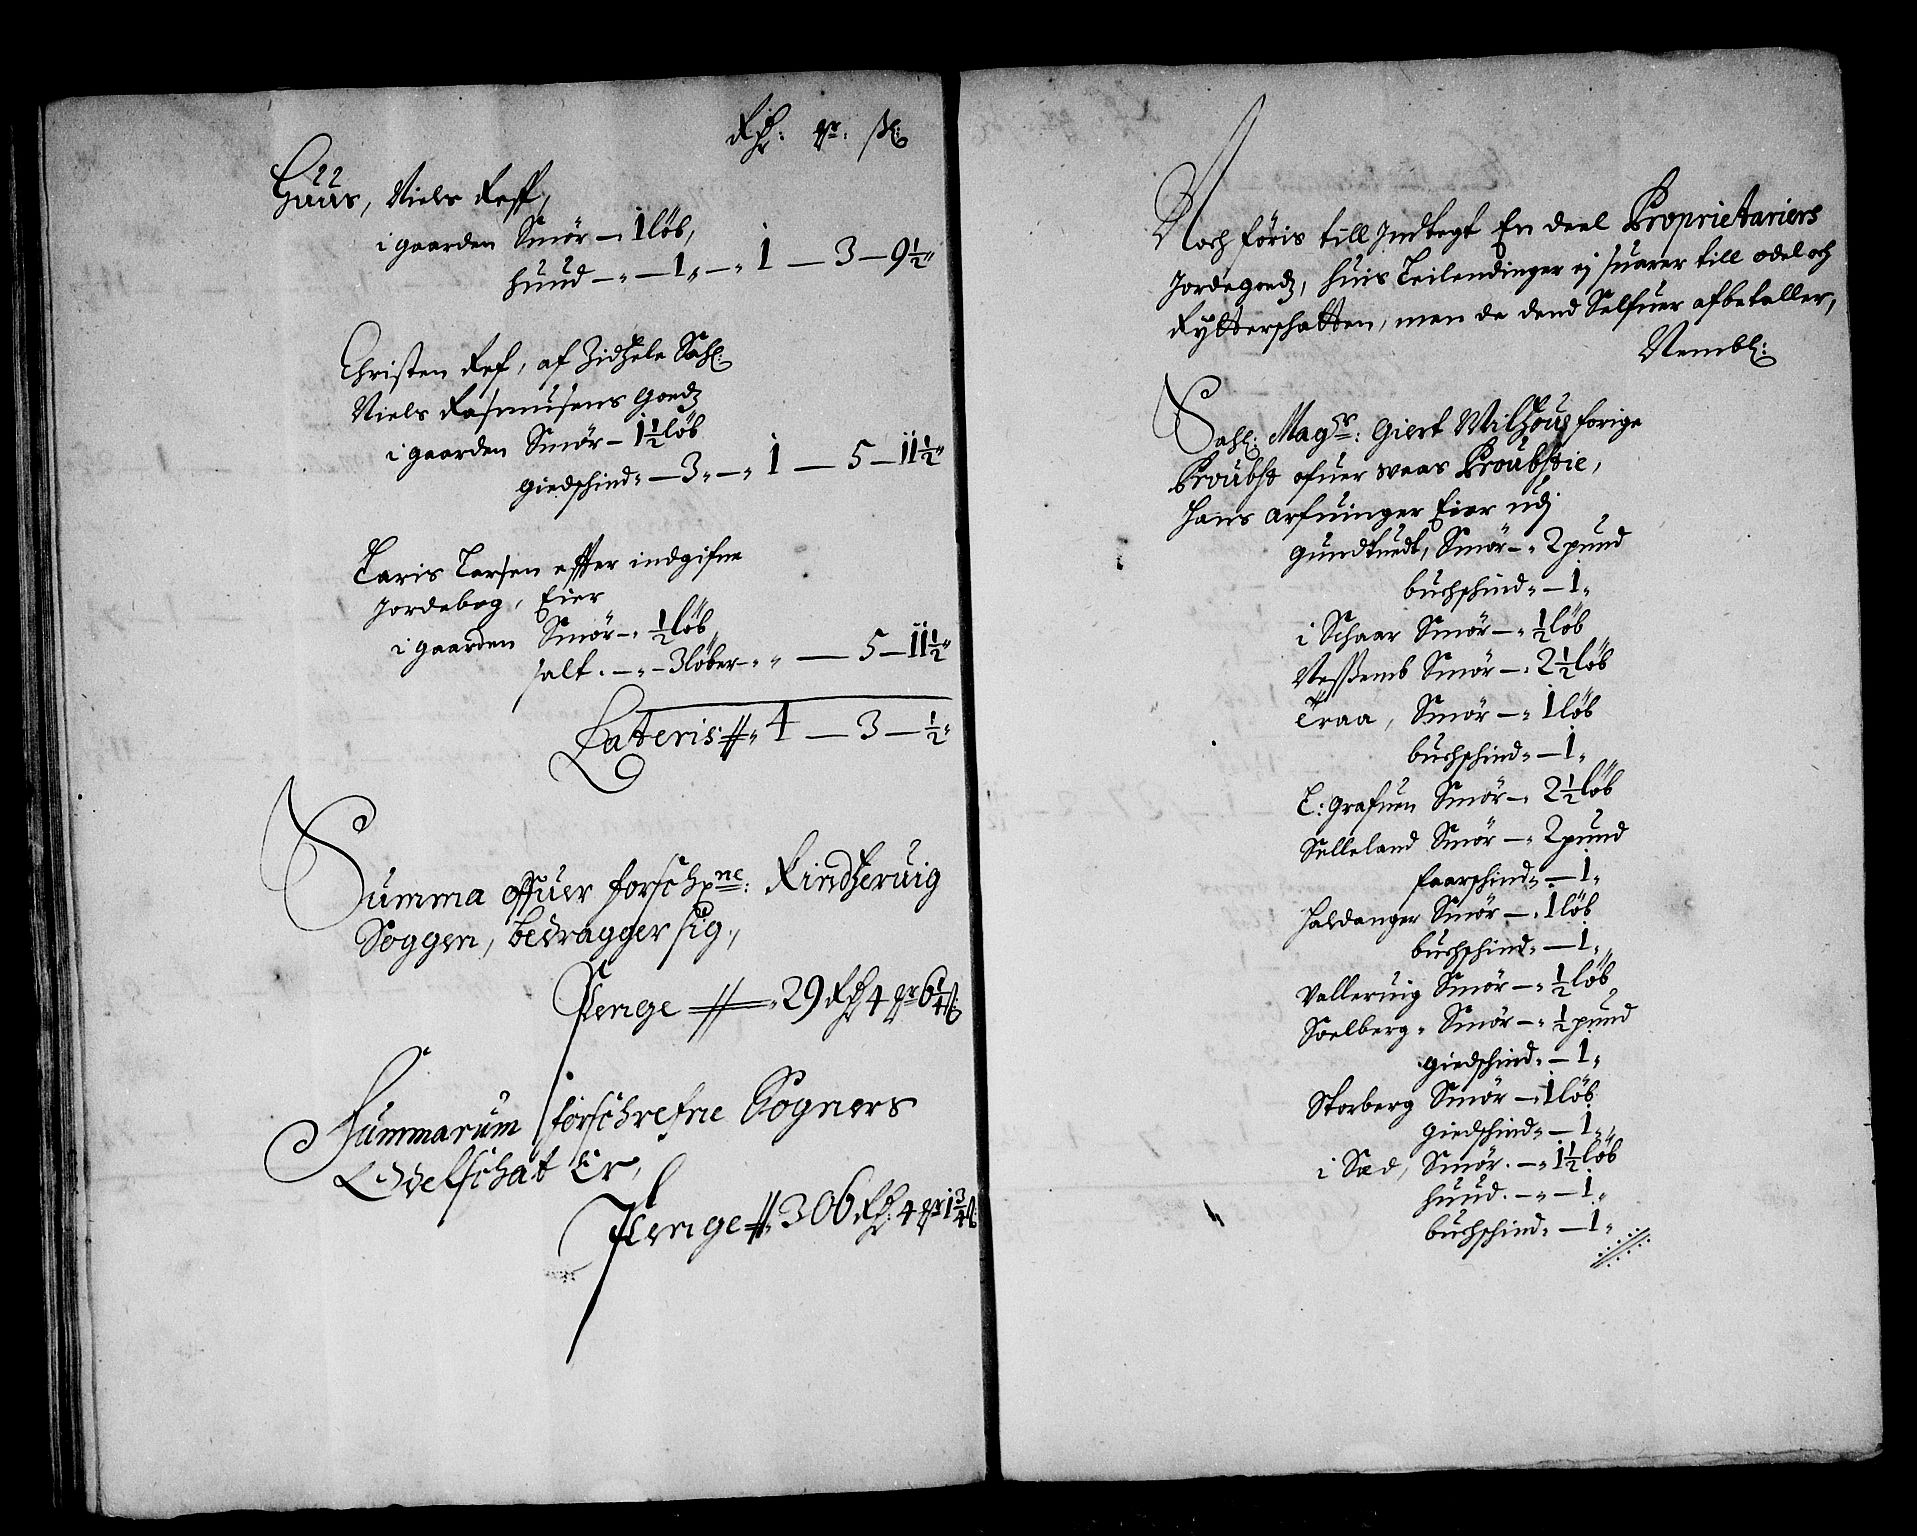 Rdr: ort: sk:
Huus, Niels Reff,
i gaarden Smör — 1 löb,
huud — „ — 1 „ — „ 1 — 3 — 9½ „
Christen Ref, af Zidzele Sahl:
Niels Rasmusens goedz
i gaarden Smör — 1½ löb
giedschind „ — 3 „ — „ 1 — 5 — 11½ „
Laris Larsen effter indgifne
Jordebog, Eier
i gaarden Smör — „ ½ löb
salt. — „ — 3 löber — „ „ — 5 — 11½ „
Lateris # „ 4 — 3 — ½ „
Summa offuer forschne: Kindzeruig
Soggen, bedragger sig,
Penge # „ 29 Rdr 4 ort 6¼ sk:
Summarum forschrefne Sogners
Odelschat Er,
Penge # „ 306 Rdr: 4 ort 1¾ sk:
Noch föris till Indtegt En deel Proprietariers
Jordegoedz, huis Leilendinger ej suarer till odel och
Rytterschatten, men de dend Selfuer afbetaller,
Nembl:
Sahl: Magr: Giert Milzoug forige
Proubst ofuer Waas Proubstie,
Hans arfuinger Eier udj
gundtuedt, Smör — „ 2 pund
buchschind „ — 1 „
i Schaar Smör — „ ½ löb
Nesßemb Smör — „ 2½ löb
Traa, Smör — „ 1 löb
buchschind „ — 1 „
L: grafuen Smör — „ 2½ löb
Selleland Smör — „ 2 pund
faarschind „ — 1 „
Haldanger Smör — „ 1 löb
buchschind „ — 1 „
Valleruig Smör — „ ½ löb
Soelberg „ Smör — „ ½ pund
giedschind „ — 1 „
Storberg Smör — „ 1 löb
giedschind „ — 1 „
i Sæd, Smör. — „ 1½ löb
huud. — „ — 1 „
buchschind „ — 1 „